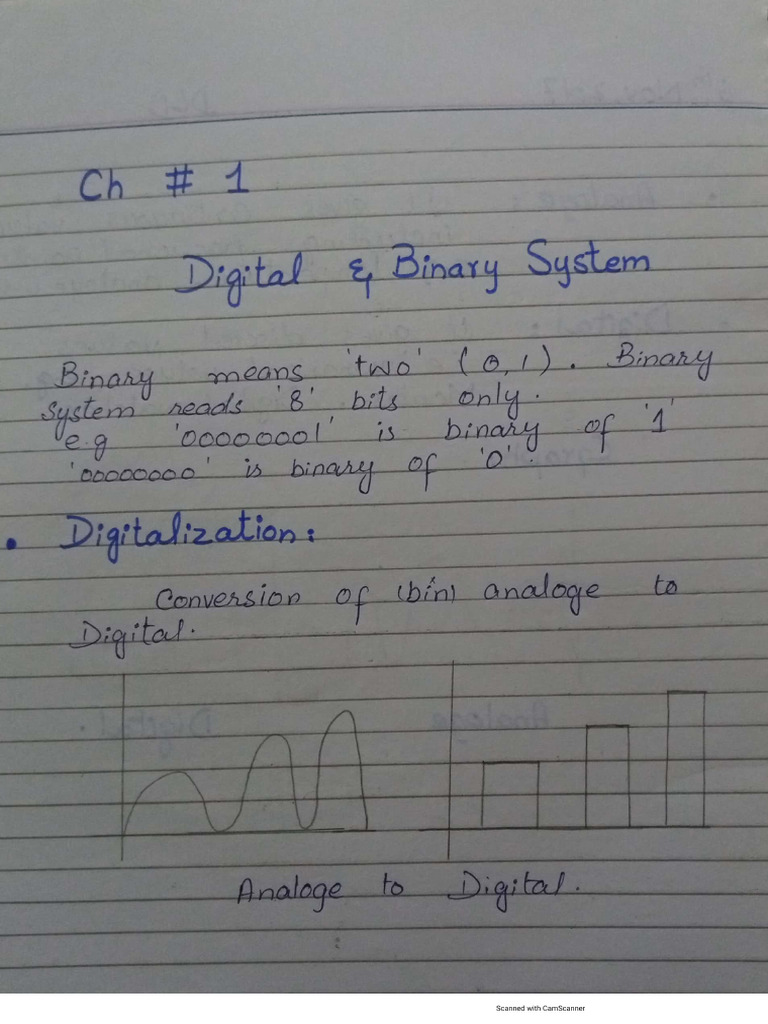 Ch # 1
Digital & Binary System
Binary means 'two' (0,1). Binary
System reads '8' bits only.
e.g '00000001' is binary of '1'
'00000000' is binary of '0'.
• Digitalization:
Conversion of (bin) analoge to
Digital.
Analoge to Digital.
Scanned with CamScanner